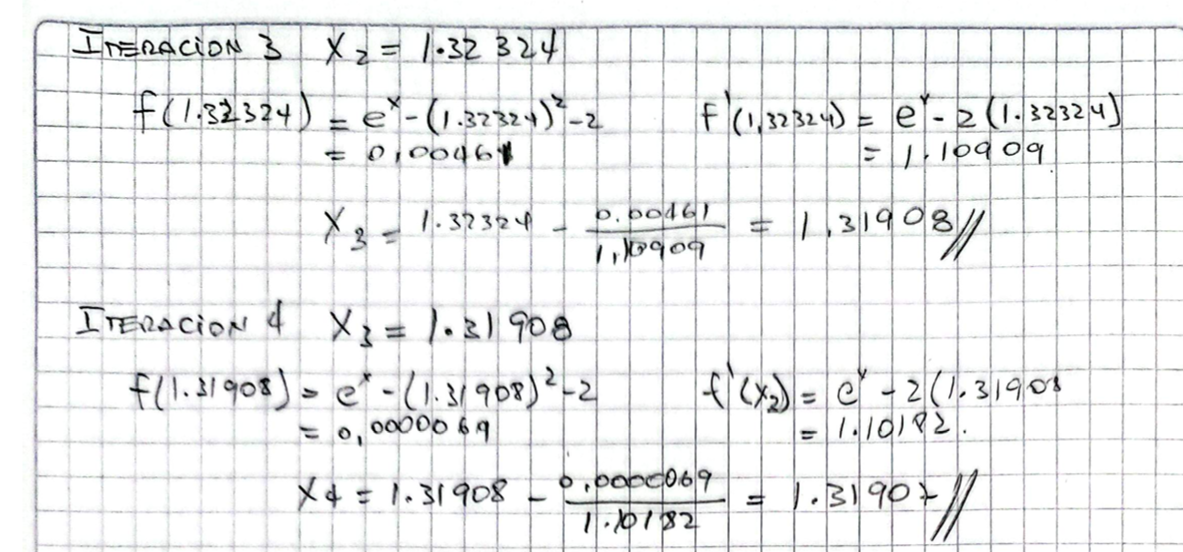 ITERACION 3 X₂ = 1.32324
f(1.32324) = eˣ - (1.32324)² - 2 f'(1,32324) = eˣ - 2(1.32324)
= 0,00461 = 1.10909
X₃ = 1.32324 - 0.00461 / 1,10909 = 1,31908 //
ITERACION 4 X₃ = 1.31908
f(1.31908) = eˣ - (1.31908)² - 2 f'(x₂) = eˣ - 2(1.31908
= 0,0000069 = 1.10182.
X4 = 1.31908 - 0,0000069 / 1.10182 = 1.31907 //